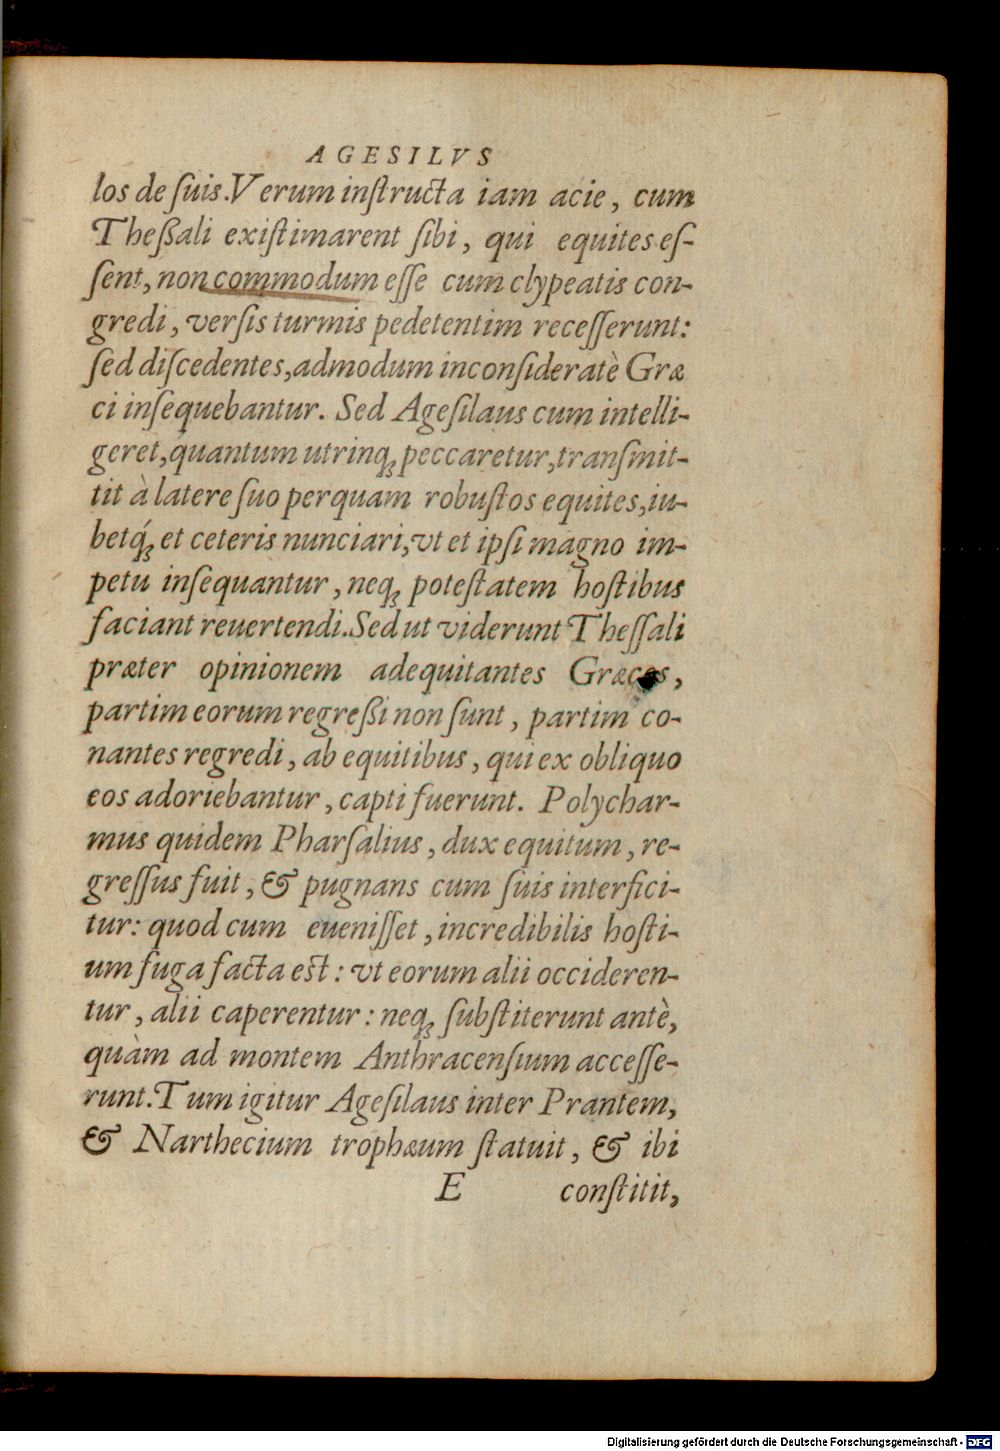 AGESILVS
los de ſuis. Verum inſtructa iam acie, cum
Theßali exiſtimarent ſibi, qui equites eſ-
ſent, non commodum eſſe cum clypeatis con-
gredi, verſis turmis pedetentim receſſerunt:
ſed diſcedentes, admodum inconſideratè Græ
ci inſequebantur. Sed Ageſilaus cum intelli-
geret, quantum utrinq; peccaretur, tranſmit-
tit à latere ſuo perquam robuſtos equites, iu-
betq́; et ceteris nunciari, vt et ipſi magno im-
petu inſequantur, neq; poteſtatem hoſtibus
faciant reuertendi. Sed ut viderunt Theſſali
præter opinionem adequitantes Græcos,
partim eorum regreßi non ſunt, partim co-
nantes regredi, ab equitibus, qui ex obliquo
eos adoriebantur, capti fuerunt. Polychar-
mus quidem Pharſalius, dux equitum, re-
greſſus fuit, & pugnans cum ſuis interfici-
tur: quod cum eueniſſet, incredibilis hoſti-
um fuga facta eſt: vt eorum alii occideren-
tur, alii caperentur: neq; ſubſtiterunt antè,
quàm ad montem Anthracenſium acceſſe-
runt. Tum igitur Ageſilaus inter Prantem,
& Narthecium trophæum ſtatuit, & ibi
E conſtitit,
Digitalisierung gefördert durch die Deutsche Forschungsgemeinschaft - DFG